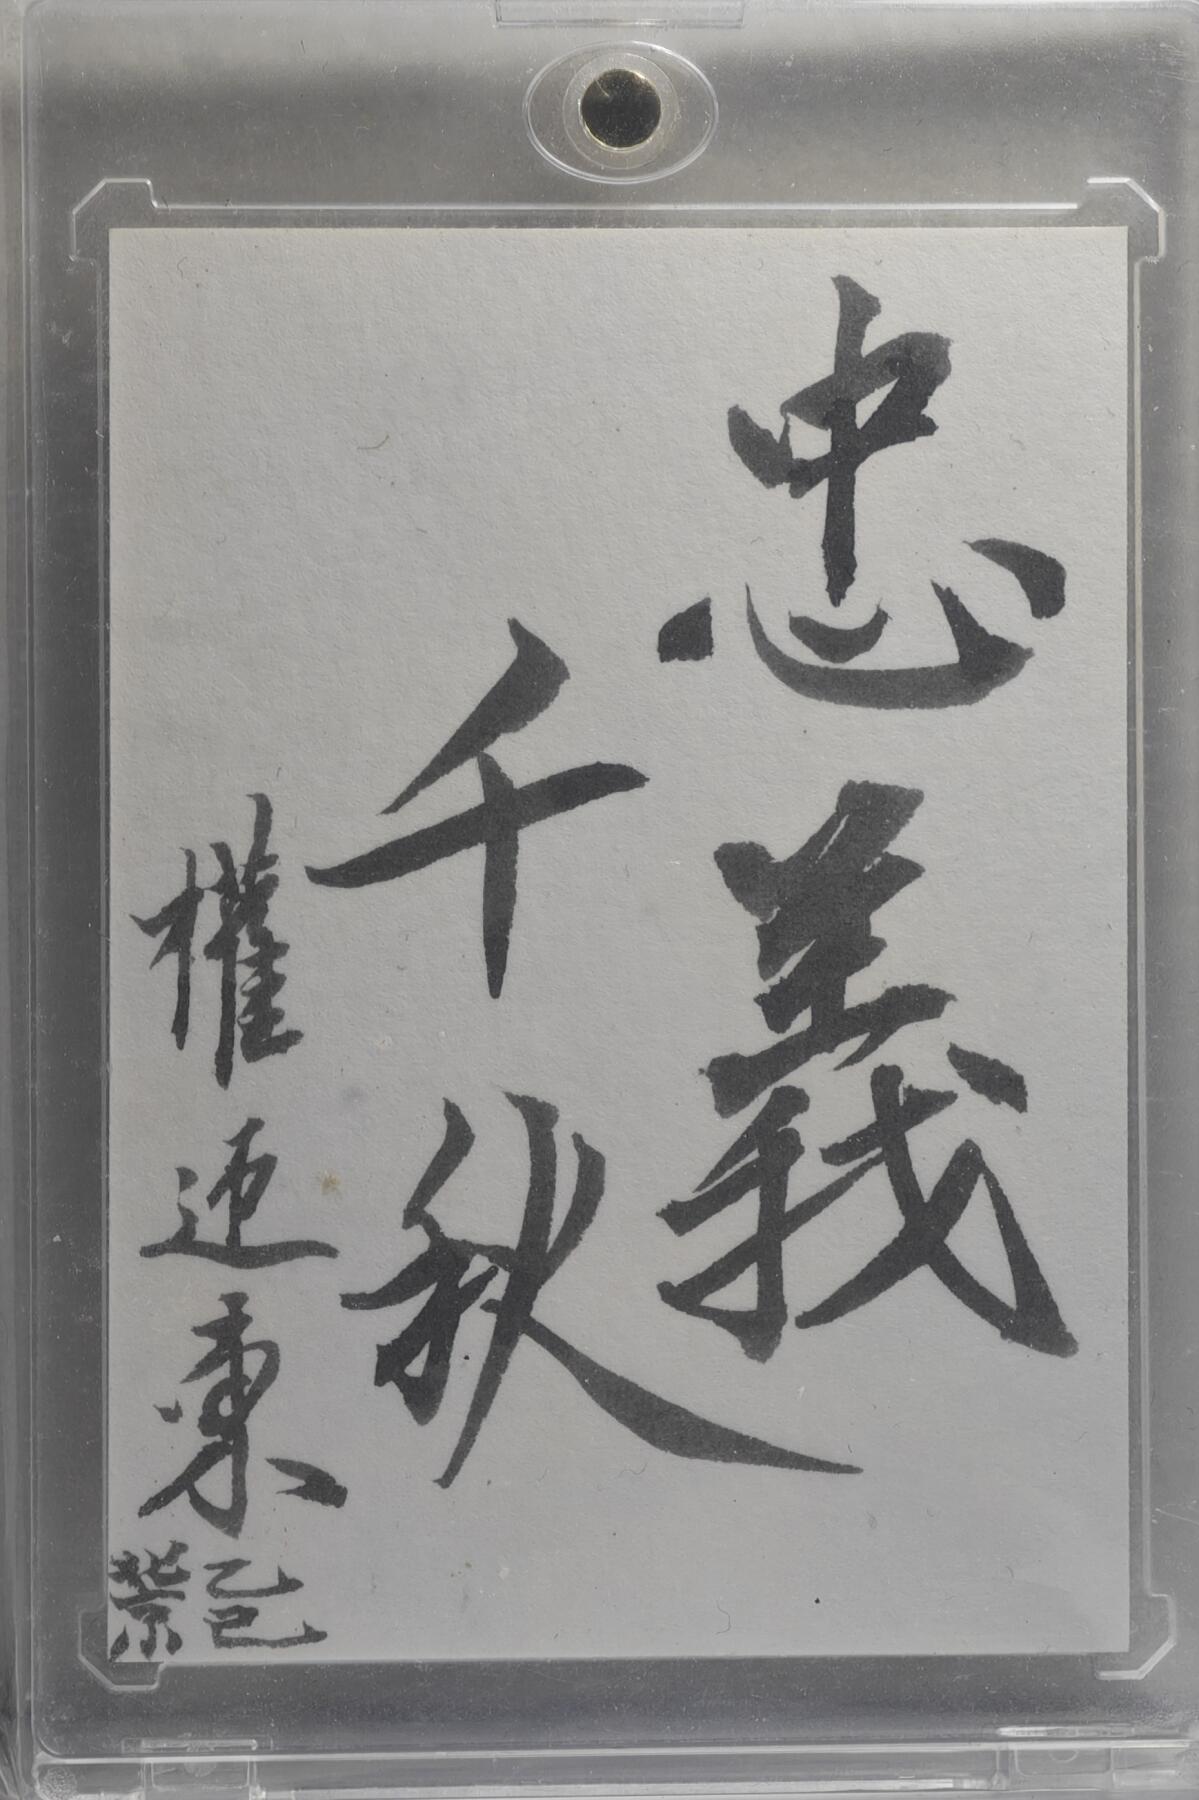 忠義
千秋
權迎東
乙巳